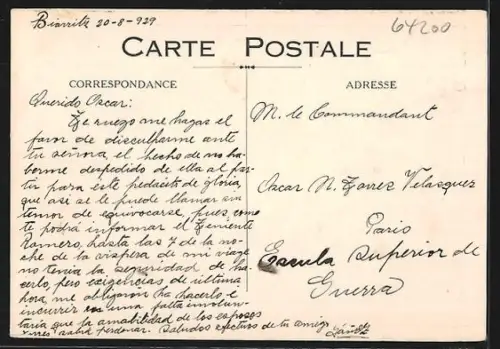 Biarritz 20-8-929
64200
CARTE POSTALE
CORRESPONDANCE
ADRESSE
Querido Oscar:
Te ruego me hagas el
favor de disculharme ante
tu señora, el hecho de no ha-
berme despedido de ella al par-
tir para este pedacito de gloria,
que asi se le puede llamar sin
temor de equivocarse, pues como
te podrá informar el Teniente
Romero, hasta las 7 de la no-
che de la vispera de mi viaje
no tenia la seguridad de ha-
cerlo, pero exigencias de ultima
hora, me obligaron ha hacerlo e
incurrir en una falta involun-
taria que la amabilidad de los esposos
sabrá perdonar. Saludos efectivos de tu amigo
M. le Commandant
Oscar N. Torres Velasquez
Paris
Escuela Superior de
Guerra